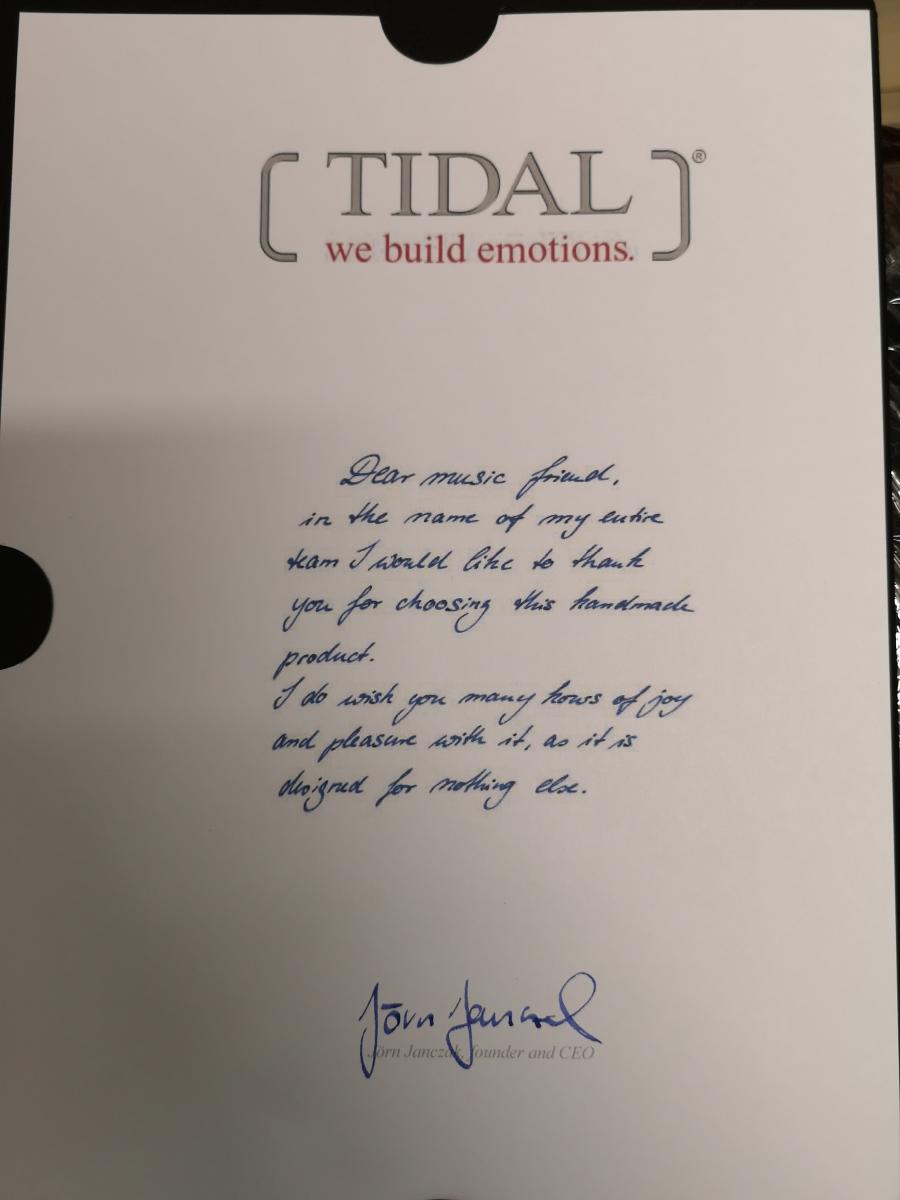 TIDAL®
we build emotions.
Dear music friend,
in the name of my entire
team I would like to thank
you for choosing this handmade
product.
I do wish you many hours of joy
and pleasure with it, as it is
designed for nothing else.
Jörn Janczak
Jörn Janczak, founder and CEO